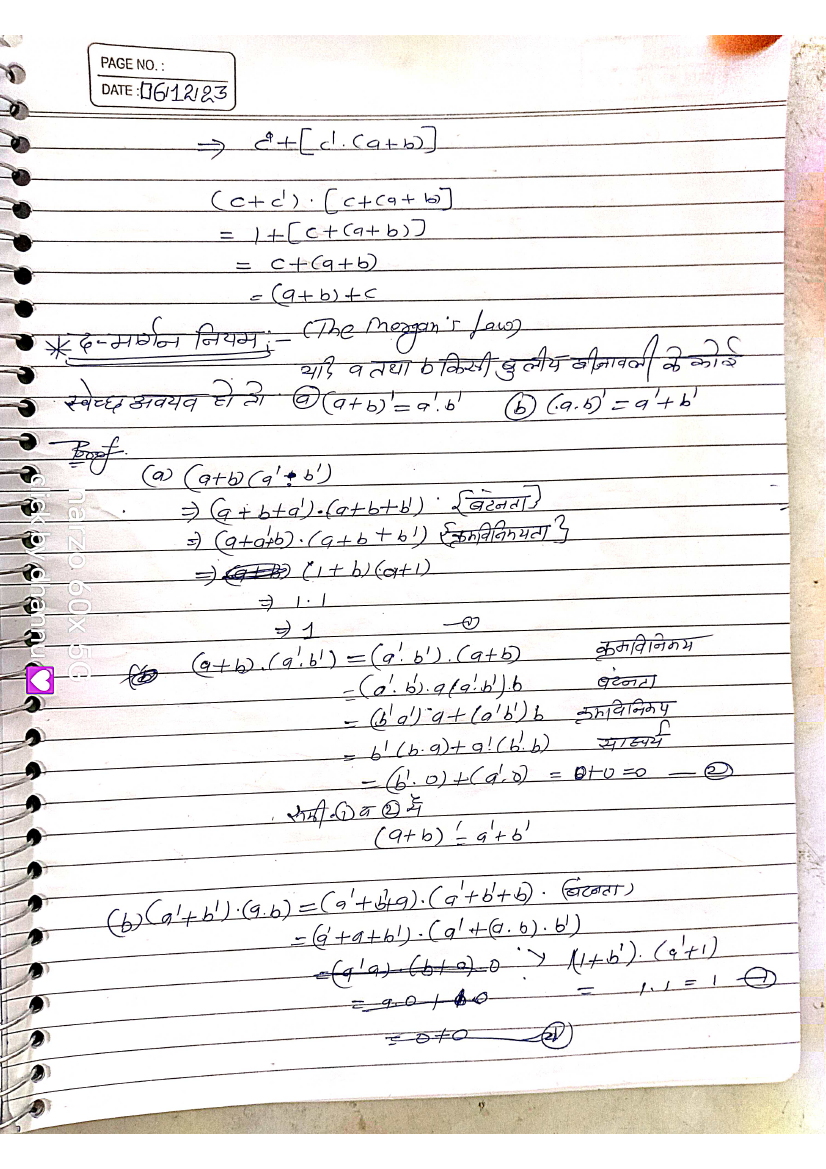 PAGE NO. :
DATE : 06/12/23
⇒ c + [c'. (a+b)]
(c+c') . [c+(a+b)]
= 1+[c+(a+b)]
= c+(a+b)
= (a+b)+c
* द-मर्गन नियम :- (The Morgan's Law)
यदि a तथा b किसी बुलीय बीजावली के कोई
स्वेच्छ अवयव हो तो (a) (a+b)' = a'.b' (b) (a.b)' = a'+b'
Proof.
(a) (a+b) (a'+b')
⇒ (a+b+a').(a+b+b') . {बंटनता}
⇒ (a+a'+b).(a+b+b') {क्रमविनिमयता}
⇒ (1+b)(a+1)
⇒ 1.1
⇒ 1 —①
(a+b).(a'.b') = (a'.b').(a+b) क्रमविनिमय
= (a'.b').a(a'.b').b बंटनता
= (b'a').a+(a'b')b क्रमविनिमय
= b'(b.a)+a'(b'.b) साहचर्य
= (b'.0)+(a'.0) = 0+0=0 —②
समी. ① व ② से
(a+b)' = a'+b'
(b) (a'+b').(a.b) = (a'+b'+a).(a'+b'+b) . (बंटनता)
= (a'+a+b').(a'+(a.b).b')
= (a'a).(b+a).0 ⇒ (1+b').(a'+1)
= a.0+b0 = 1.1 = 1 —①
= 0+0 —②
harzo 60x 5G
click by dhannu